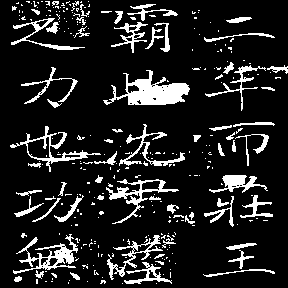 二年而莊王
霸此沈尹莖
之力也功無